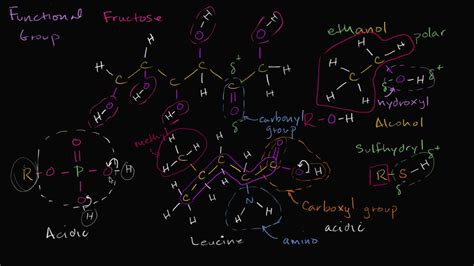 Functional
Group
Fructose
ethanol
polar
hydroxyl
R-O-H
Alcohol
carbonyl
group
methyl
Sulfhydryl
R-S-H
Carboxyl group
acidic
amino
Leucine
Acidic
R-O-P-O-H